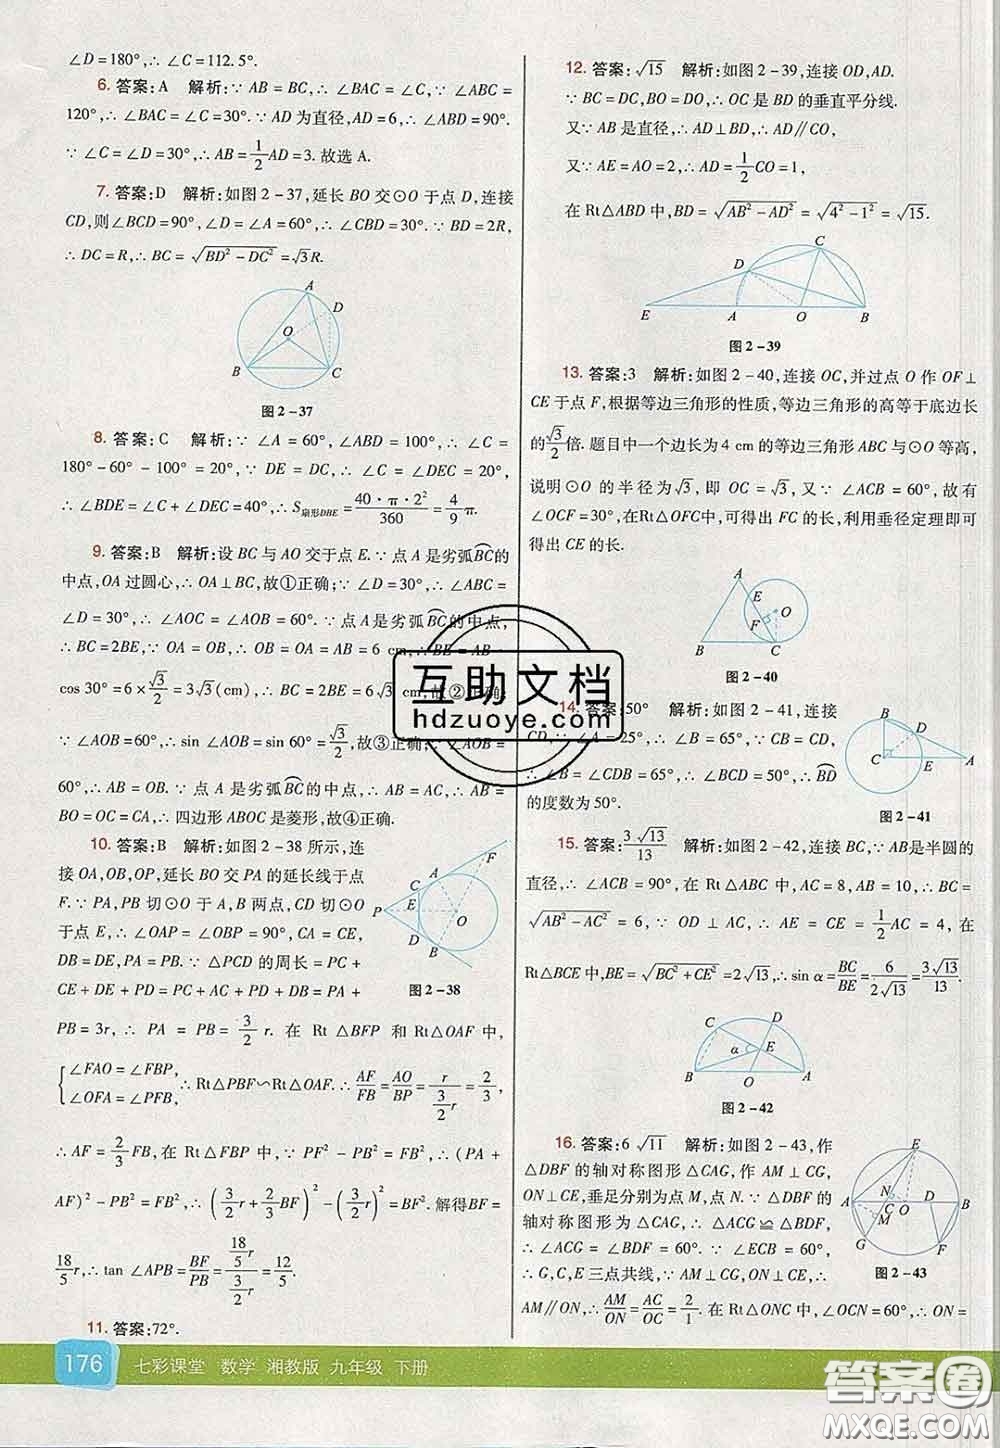 ∠D=180°,∴∠C=112.5°.
6. 答案:A 解析:∵AB=BC,∴∠BAC=∠C,∵∠ABC=
120°,∴∠BAC=∠C=30°.∵AD为直径,AD=6,∴∠ABD=90°.
∵∠C=∠D=30°,∴AB=1/2AD=3.故选A.
7. 答案:D 解析:如图2-37,延长BO交⊙O于点D,连接
CD,则∠BCD=90°,∠D=∠A=60°,∴∠CBD=30°.∵BD=2R,
∴DC=R,∴BC=√(BD²-DC²)=√3R.
A
D
O
B
C
图2-37
8. 答案:C 解析:∵∠A=60°,∠ABD=100°,∴∠C=
180°-60°-100°=20°,∵DE=DC,∴∠C=∠DEC=20°,
∴∠BDE=∠C+∠DEC=40°,∴S扇形DBE=40·π·2²/360=4/9π.
9. 答案:B 解析:设BC与AO交于点E.∵点A是劣弧BC的
中点,OA过圆心,∴OA⊥BC,故①正确;∵∠D=30°,∴∠ABC=
∠D=30°,∴∠AOC=∠AOB=60°.∵点A是劣弧BC的中点,
∴BC=2BE,∵OA=OB,∴OA=OB=AB=6 cm,∴BE=AB·
cos 30°=6×√3/2=3√3(cm),∴BC=2BE=6√3 cm,故②正确;
∵∠AOB=60°,∴sin∠AOB=sin 60°=√3/2,故③正确;∵∠AOB=
60°,∴AB=OB.∵点A是劣弧BC的中点,∴AB=AC=OA=
BO=OC=CA,∴四边形ABOC是菱形,故④正确.
10. 答案:B 解析:如图2-38所示,连
接OA,OB,OP,延长BO交PA的延长线于点
F.∵PA,PB切⊙O于A,B两点,CD切⊙O
于点E,∴∠OAP=∠OBP=90°,CA=CE,
DB=DE,PA=PB.∵△PCD的周长=PC+
CE+DE+PD=PC+AC+PD+DB=PA+
A
F
C
P
E
O
D
B
图2-38
PB=3r,∴PA=PB=3/2r.在Rt△BFP和Rt△OAF中,
{∠FAO=∠FBP,
∠OFA=∠PFB, ∴Rt△PBF∽Rt△OAF.∴AF/FB=AO/BP=r/(3/2r)=2/3,
∴AF=2/3FB,在Rt△FBP中,∵PF²-PB²=FB²,∴(PA+
AF)²-PB²=FB²,∴(3/2r+2/3BF)²-(3/2r)²=BF².解得BF=
18/5r,∴tan∠APB=BF/PB=(18/5r)/(3/2r)=12/5.
11. 答案:72°.
12. 答案:√15 解析:如图2-39,连接OD,AD.
∵BC=DC,BO=DO,∴OC是BD的垂直平分线.
又∵AB是直径,∴AD⊥BD,∴AD∥CO,
又∵AE=AO=2,∴AD=1/2CO=1,
在Rt△ABD中,BD=√(AB²-AD²)=√(4²-1²)=√15.
C
D
E
A
O
B
图2-39
13. 答案:3 解析:如图2-40,连接OC,并过点O作OF⊥
CE于点F,根据等边三角形的性质,等边三角形的高等于底边长
的√3/2倍.题目中一个边长为4 cm的等边三角形ABC与⊙O等高,
说明⊙O的半径为√3,即OC=√3,又∵∠ACB=60°,故有
∠OCF=30°,在Rt△OFC中,可得出FC的长,利用垂径定理即可
得出CE的长.
A
E
O
F
B
C
图2-40
14. 答案:50° 解析:如图2-41,连接
CD,∵∠A=25°,∴∠B=65°,∵CB=CD,
∴∠B=∠CDB=65°,∴∠BCD=50°,∴BD
的度数为50°.
B
D
C
E
A
图2-41
15. 答案:3√13/13 解析:如图2-42,连接BC,∵AB是半圆的
直径,∴∠ACB=90°,在Rt△ABC中,AC=8,AB=10,∴BC=
√(AB²-AC²)=6,∵OD⊥AC,∴AE=CE=1/2AC=4,在
Rt△BCE中,BE=√(BC²+CE²)=2√13,∴sin α=BC/BE=6/(2√13)=3√13/13.
D
C
α
E
B
O
A
图2-42
16. 答案:6√11 解析:如图2-43,作
△DBF的轴对称图形△CAG,作AM⊥CG,
ON⊥CE,垂足分别为点M,点N.∵△DBF的
轴对称图形为△CAG,∴△ACG≌△BDF,
∴∠ACG=∠BDF=60°.∵∠ECB=60°,
∴G,C,E三点共线,∵AM⊥CG,ON⊥CE,∴
E
N
D
A
C
O
B
M
G
F
图2-43
AM∥ON,∴AM/ON=AC/OC=2/1.在Rt△ONC中,∠OCN=60°,∴ON=
176 七彩课堂 数学 湘教版 九年级 下册
互助文档
hdzuoye.com
答案圈
MXQE.COM